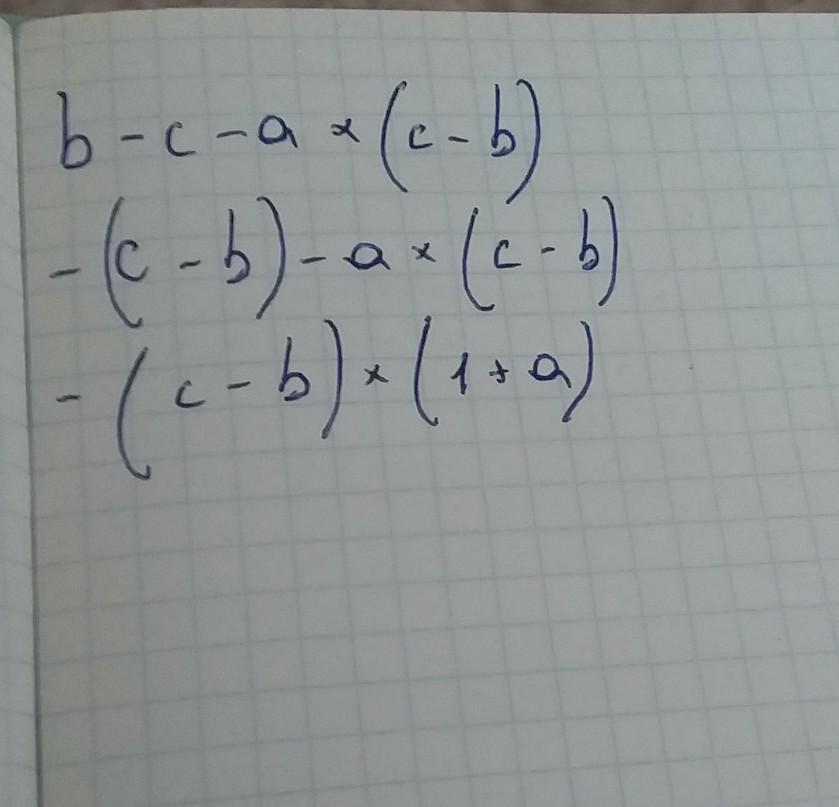 b - c - a × (c - b)
- (c - b) - a × (c - b)
- (c - b) × (1 + a)